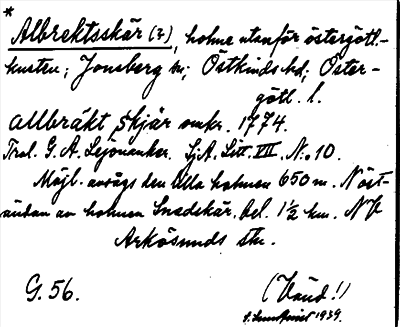 *
Albrektsskär (?), holme utanför östergötl.-
kusten; Jonsberg sn; Östkinds hd; Öster-
götl. l.
Allbräkt Skjär omkr. 1774.
Trol. G. A. Lejonanker. SjA. Litt. VII, No 10.
Möjl. avsågs den lilla holmen 650 m. N öst-
ändan av holmen Snedskär, bel. 1½ km. NV
Arkösunds stn.
G. 56.
(Vänd!)
1939.